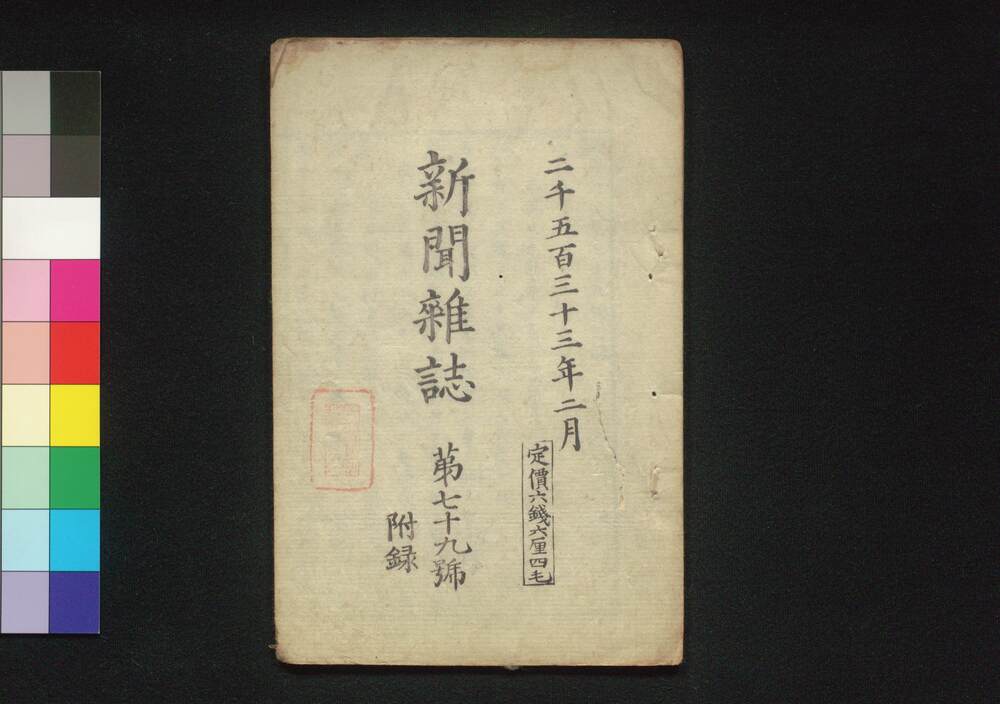 二千五百三十三年二月
定價六錢六厘四毛
新聞雜誌 第七十九號
附録